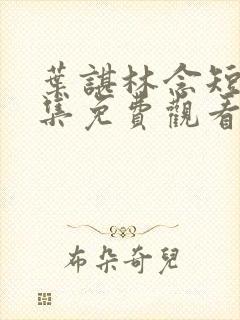 葉諶林念短
集免費觀看
布朵奇兒